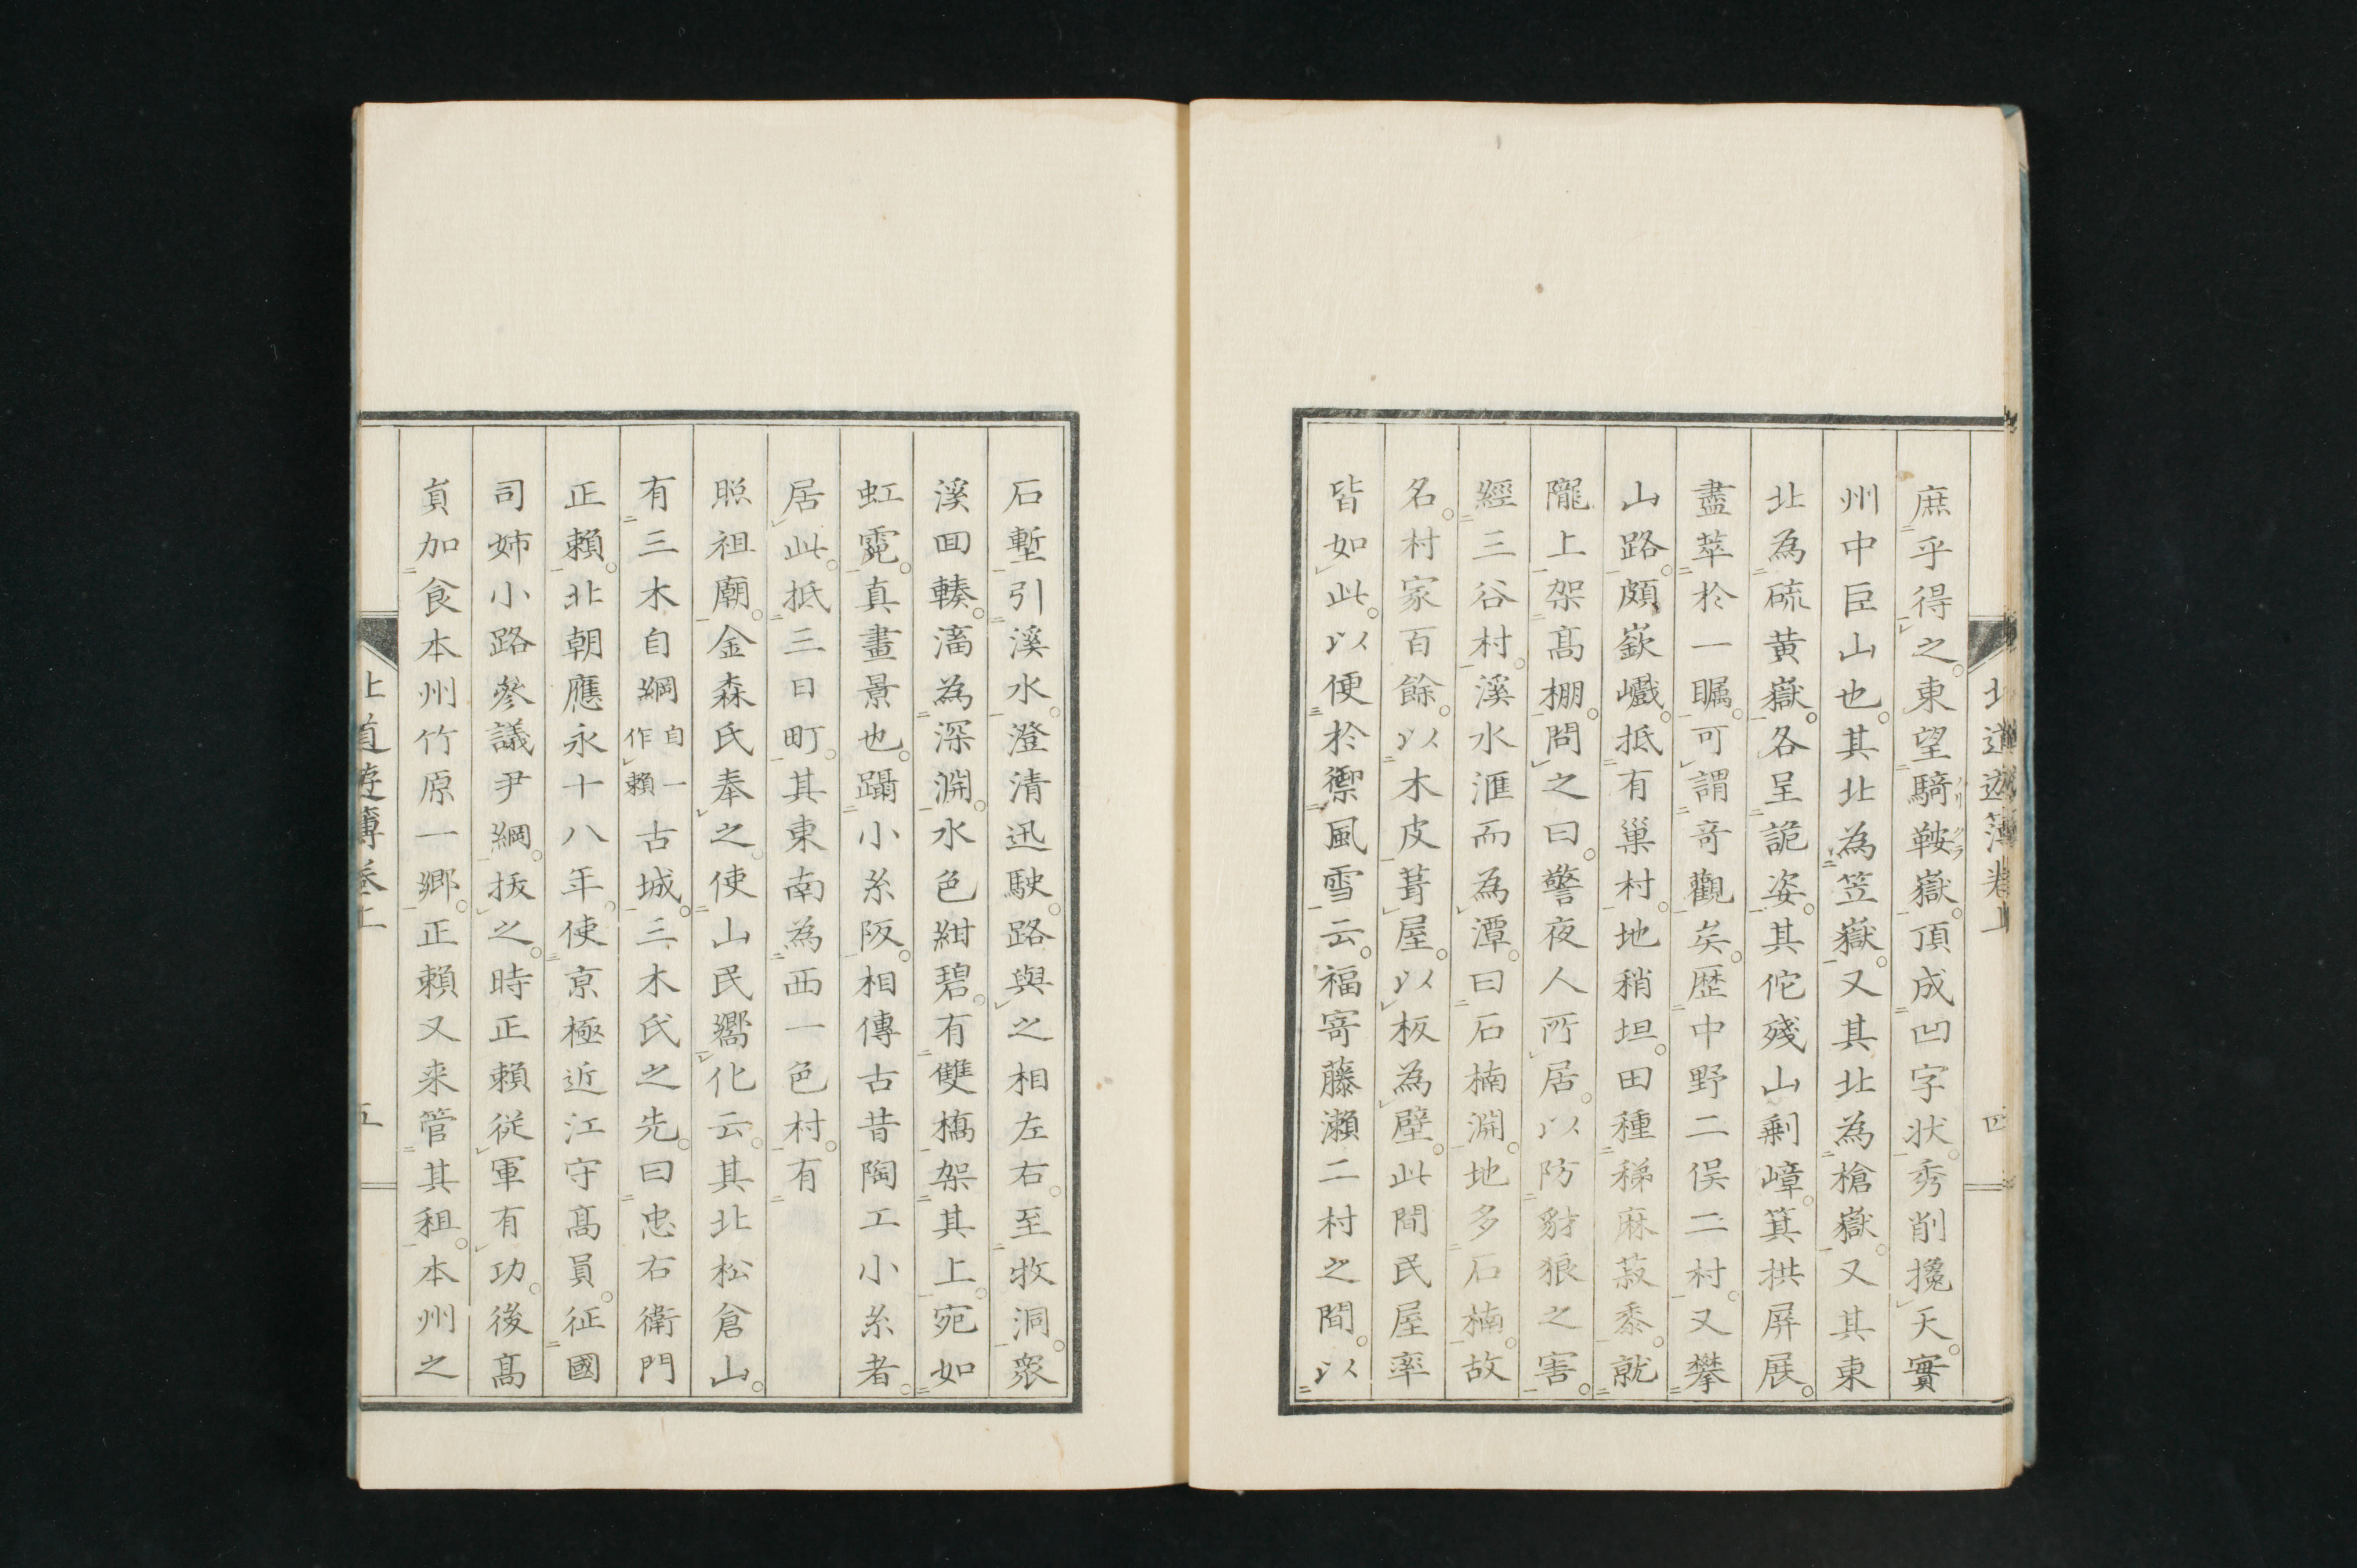 北道遊簿卷上 四
庶乎得之。東望騎鞍嶽。頂成凹字状。秀削攙天。實
州中巨山也。其北為笠嶽。又其北為槍嶽。又其東
北為硫黄嶽。各呈詭姿。其佗殘山剰嶂。箕拱屏展。
盡萃於一矚。可謂奇觀矣。歴中野二俣二村。又攀
山路。頗嶔巇。抵有巢村。地稍坦。田種稊麻菽黍。就
隴上架髙棚。問之曰。警夜人所居。以防豺狼之害。
經三谷村。溪水滙而為潭。曰石楠淵。地多石楠。故
名。村家百餘。以木皮葺屋。以板為壁。此間民屋率
皆如此。以便於禦風雪云。福寄藤瀬二村之間。以
石塹引溪水。澄清迅駛。路與之相左右。至牧洞。衆
溪回輳。滀為深淵。水色紺碧。有雙橋架其上。宛如
虹霓。真畫景也。躡小糸阪。相傳古昔陶工小糸者。
居此。抵三日町。其東南為西一色村。有
照祖廟。金森氏奉之。使山民嚮化云。其北松倉山。
有三木自綱自一作賴古城。三木氏之先。曰忠右衛門
正賴。北朝應永十八年。使京極近江守髙員。征國
司姉小路參議尹綱。拔之。時正賴従軍有功。後髙
員加食本州竹原一郷。正賴又来管其租。本州之
北道遊簿卷上 五